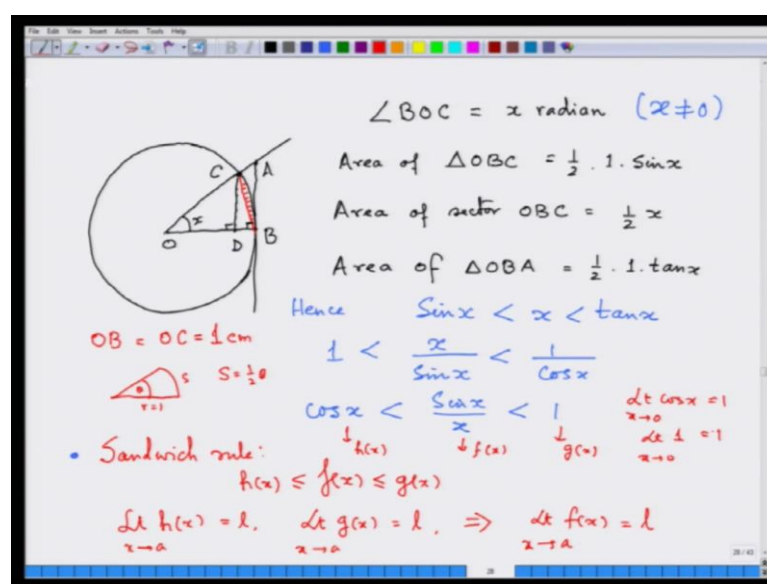 File Edit View Insert Actions Tools Help
∠BOC = x radian (x≠0)
Area of △OBC = 1/2 . 1. Sinx
Area of sector OBC = 1/2 x
Area of △OBA = 1/2 . 1. tanx
C A
x
O D B
Hence Sinx < x < tanx
OB = OC = 1 cm
1 < x/Sinx < 1/Cosx
θ s r=1 S=1/2 θ
cosx < Sinx/x < 1
↓h(x) ↓f(x) ↓g(x)
Lt cosx = 1
x→0
Lt 1 = 1
x→0
• Sandwich rule:
h(x) ≤ f(x) ≤ g(x)
Lt h(x) = l, Lt g(x) = l, ⇒ Lt f(x) = l
x→a x→a x→a
28/43
28